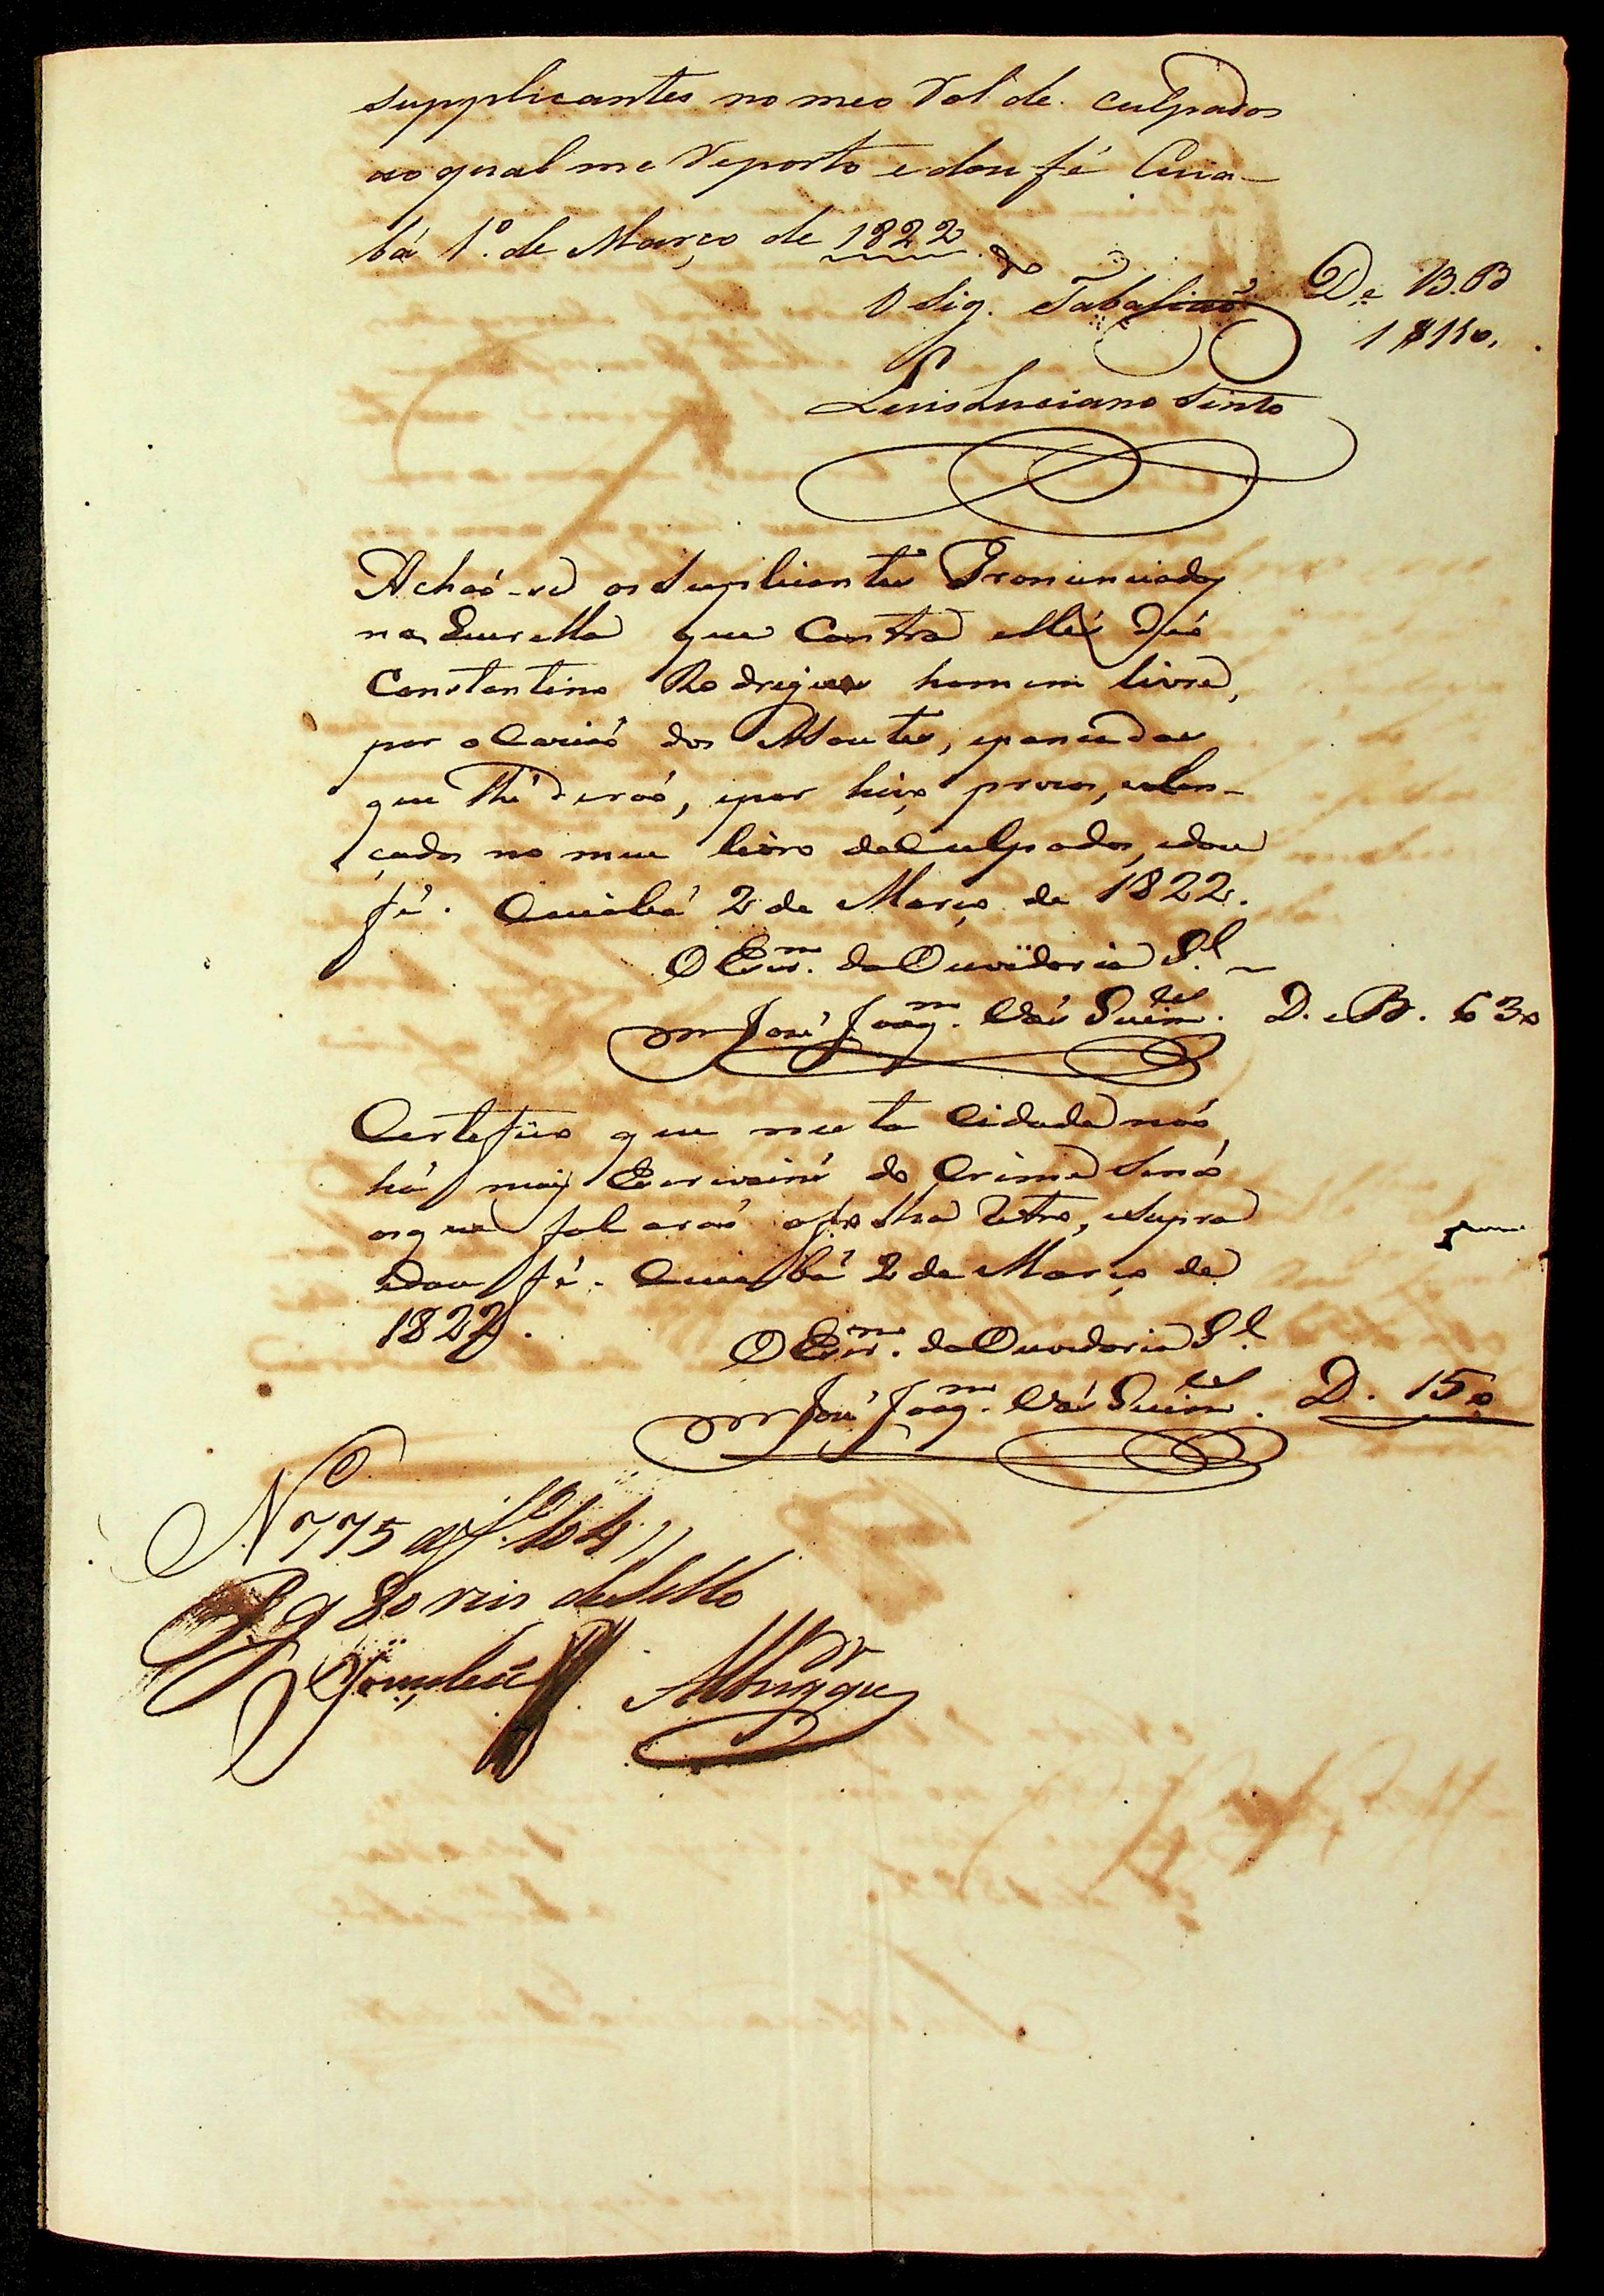 supplicantes no meo Rol de culpados
ao qual me Reporto e dou fé Cuia-
bá 1º. de Março de 1822.
O Sig.do Tabaliaõ
De B.B
1$150.
Luis Luciano Pinto
Achaõ-se os Suplicantes Pronunciados
na Querella que Contra elles deo
Constantino Rodrigues homem livre,
por ocaziaõ dos
que lhe deraõ, epor huã prova, elan-
çados no meu livro dos Culpados, edou
fé. Cuiabá 2 de Março de 1822.
O Escr.m da Ouvidoria G.l
José Joaq.m Vás Guim.es
D. e B. 630
Certefico que nesta Cidade naõ
há mais Escrivains do Crime Senaõ
os que falaraõ afolha retro, eSupra
edou fé. Cuiabá 2 de Março de
1822.
O Escr.m da Ouvidoria G.l
José Joaq.m Vás Guim.es
D. 150
N 775 af
Pg 80 reis de Sello
Albuqque